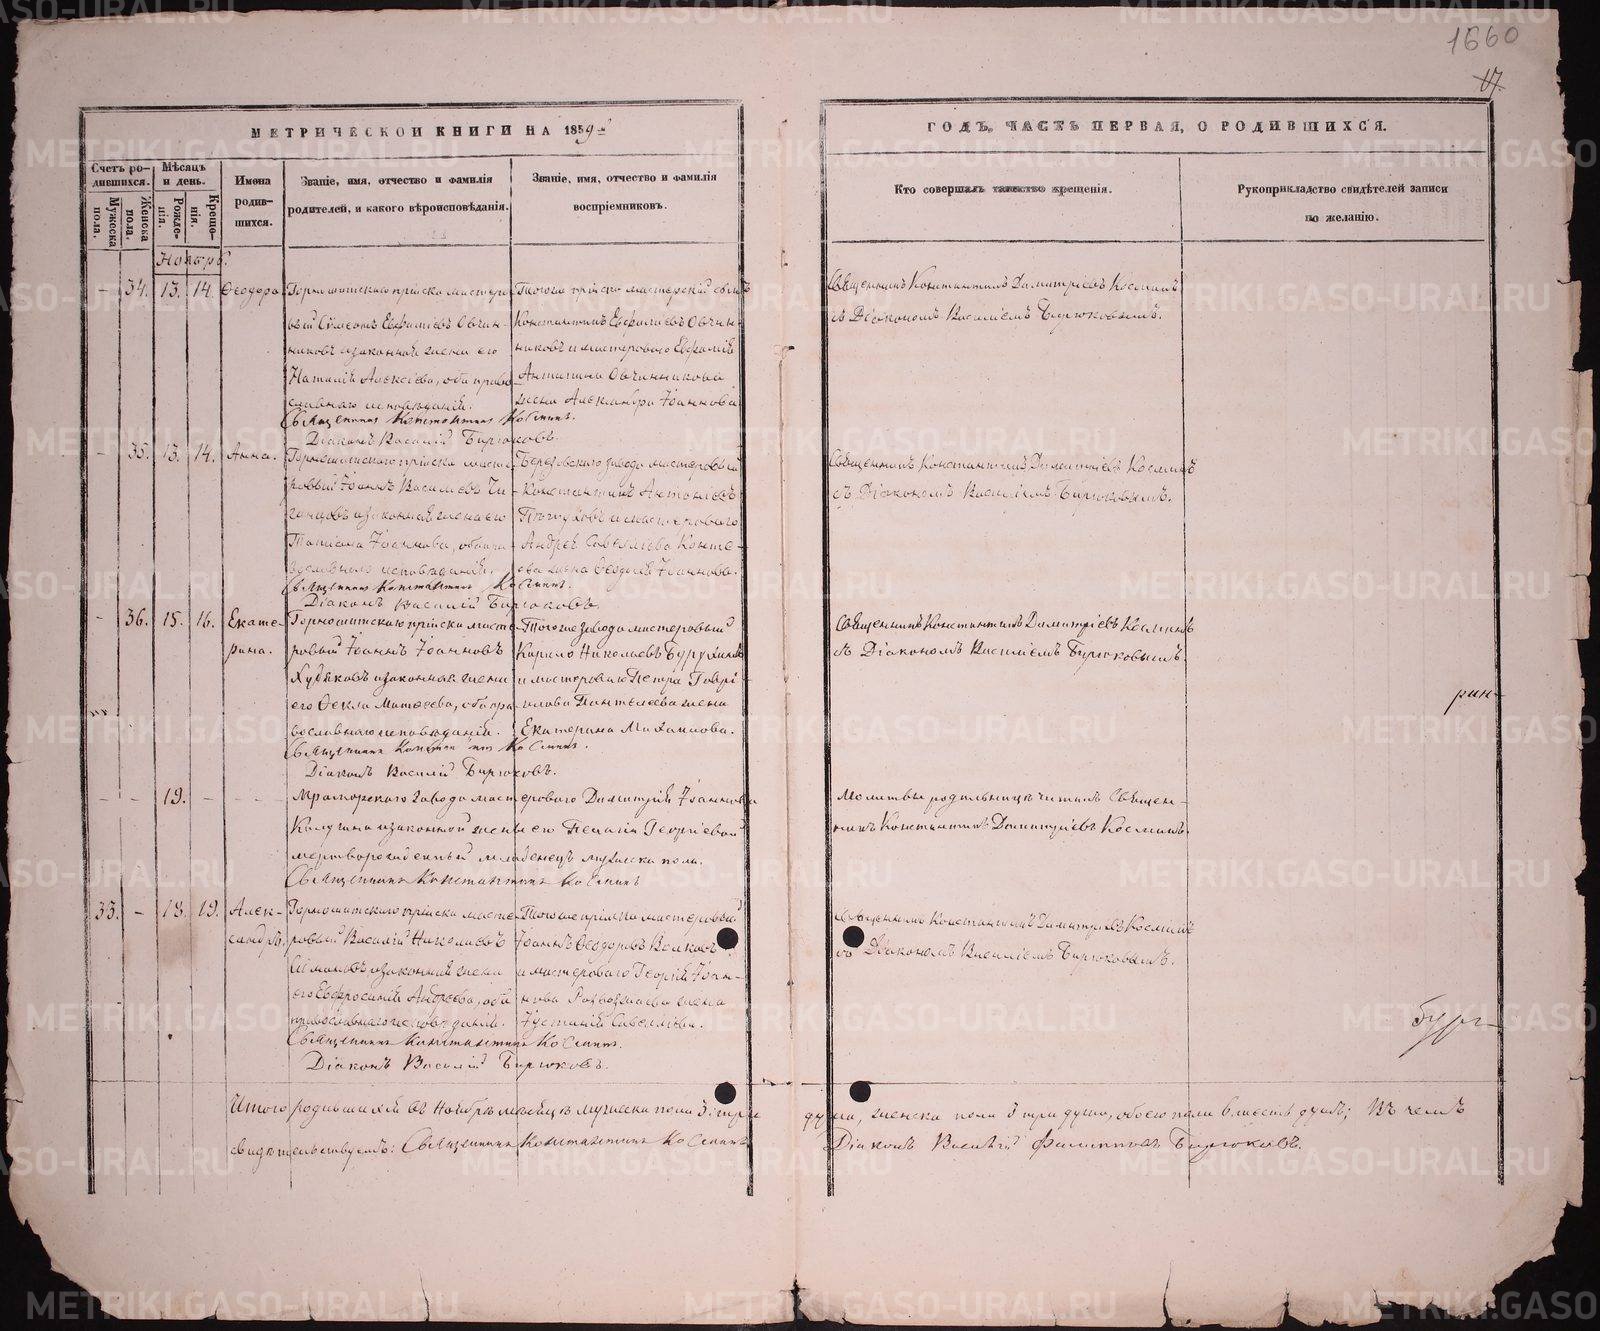 1660
17
МЕТРИЧЕСКОЙ КНИГИ НА 1859
ГОДЪ, ЧАСТЬ ПЕРВАЯ, О РОДИВШИХСЯ.
Счетъ родившихся.
Мужеска пола.
Женска пола.
Мѣсяцъ и день.
Рожденія.
Крещенія.
Имена родившихся.
Званіе, имя, отчество и фамилія
родителей, и какого вѣроисповѣданія.
Званіе, имя, отчество и фамилія
воспріемниковъ.
Кто совершалъ таинство крещенія.
Рукоприкладство свидѣтелей записи
по желанію.
Ноябрь.
34. 13. 14. Ѳеодора
Горнощитскаго пріиска мастеро-
вый Сѵмеонъ Евфиміевъ Овчин-
никовъ и законная жена его
Наталія Алексіева, оба право-
славнаго исповѣданія.
Священникъ Константинъ Косминъ.
Діаконъ Василій Бирюковъ.
Тогоже пріиска мастерскій сынъ
Константинъ Евфиміевъ Овчин-
никовъ и мастероваго Евфимія
Антипина Овчинникова
жена Александра Іоаннова
Священникъ Константинъ Димитріевъ Косминъ
съ Діакономъ Василіемъ Бирюковымъ.
35. 13. 14. Анна.
Горнощитскаго пріиска масте-
ровый Іоаннъ Василіевъ
и законная жена его
Татіана Іоаннова, оба пра-
вославнаго исповѣданія.
Священникъ Константинъ Косминъ.
Діаконъ Василій Бирюковъ.
Березовскаго завода мастеровый
Константинъ Антоніевъ
и мастероваго
Андрея Савелліева
жена Ѳеодосія Іоаннова.
Священникъ Константинъ Димитріевъ Косминъ
съ Діакономъ Василіемъ Бирюковымъ.
36. 15. 16. Екате-
рина.
Горнощитскаго пріиска масте-
ровый Іоаннъ Іоанновъ
Худяковъ и законная жена
его Ѳекла Матѳеева, оба пра-
вославнаго исповѣданія.
Священникъ Константинъ Косминъ.
Діаконъ Василій Бирюковъ.
Тогоже завода мастеровый
Кирилло Николаевъ
и мастероваго Петра Гаврі-
илова Пантелеева жена
Екатерина Михаилова.
Священникъ Константинъ Димитріевъ Косминъ
съ Діакономъ Василіемъ Бирюковымъ.
19.
Мраморскаго завода мастероваго Димитрія Іоаннова
Калугина и законной жены его Пелагіи Георгіевой
мертворожденный младенецъ мужеска пола.
Священникъ Константинъ Косминъ
Молитвы родильницѣ читалъ Священ-
никъ Константинъ Димитріевъ Косминъ.
33. 18. 19. Алек-
сандръ.
Горнощитскаго пріиска масте-
ровый Василій Николаевъ
и законная жена
его Евфросинія Андреева, оба
православнаго исповѣданія.
Священникъ Константинъ Косминъ.
Діаконъ Василій Бирюковъ.
Тогоже пріиска мастеровый
Іоаннъ Ѳеодоровъ Волковъ
и мастероваго Георгія Іоан-
нова жена
Іустинія Савелліева.
Священникъ Константинъ Димитріевъ Косминъ
съ Діакономъ Василіемъ Бирюковымъ.
Итого родившихся въ Ноябрѣ мѣсяцѣ мужеска пола 3 три души, женска пола 3 три души, обоего пола 6 шесть душъ; Въ чемъ
свидѣтельствуемъ: Священникъ Константинъ Косминъ Діаконъ Василій Филипповъ Бирюковъ.
METRIKI.GASO-URAL.RU